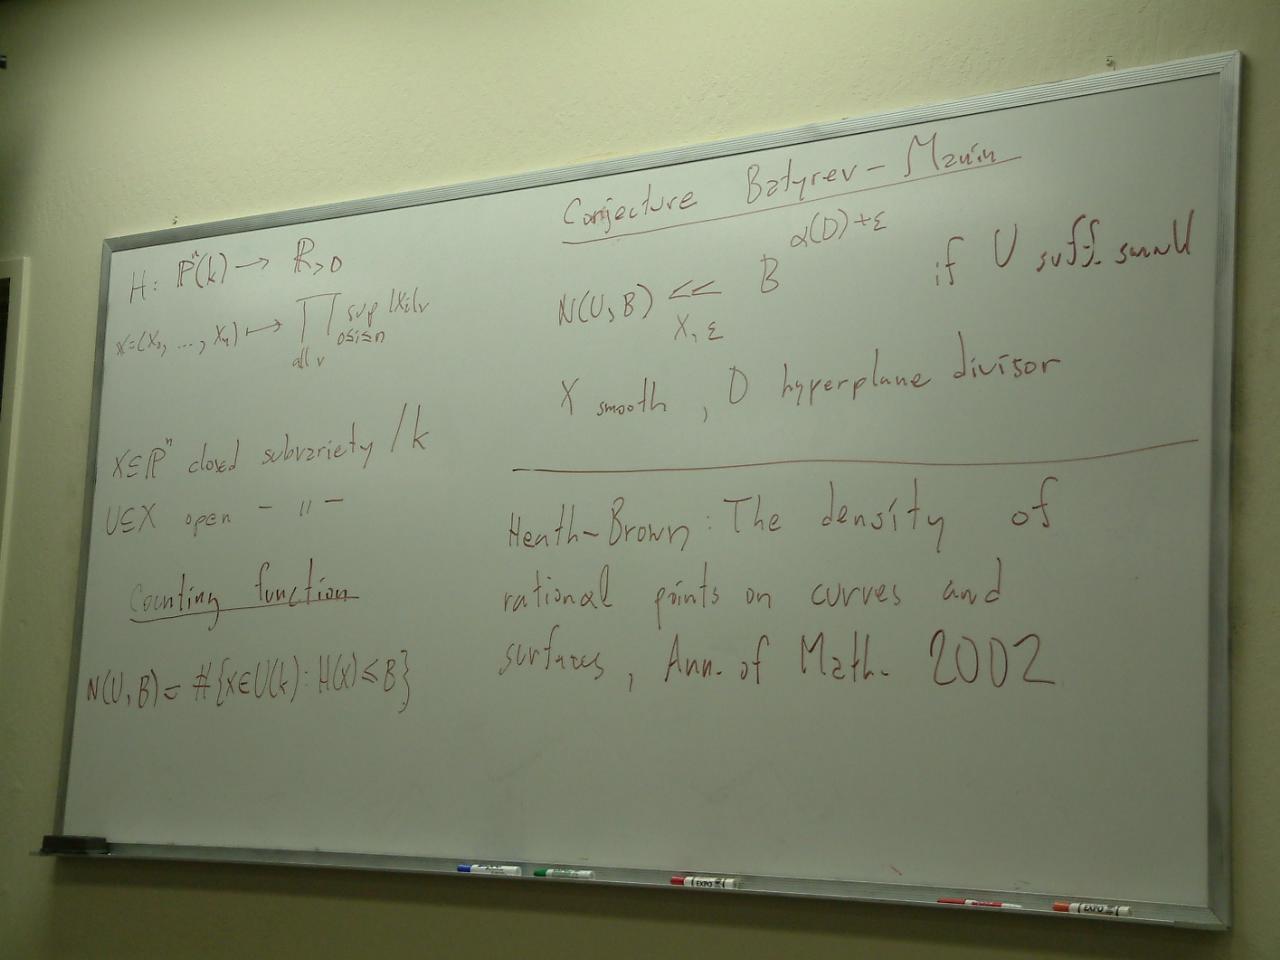 H: ℙⁿ(k) → ℝ>0
x=(x₀, ..., xₙ) ↦ ∏ sup |xᵢ|ᵥ
all v 0≤i≤n
X⊆ℙⁿ closed subvariety /k
U⊆X open - " -
Counting function
N(U, B) = #{x∈U(k) : H(x) ≤ B}
Conjecture Batyrev - Manin
N(U, B) << B^{α(D)+ε} if U suff. small
X, ε
X smooth, D hyperplane divisor
Heath-Brown: The density of
rational points on curves and
surfaces, Ann. of Math. 2002
EXPO
EXPO